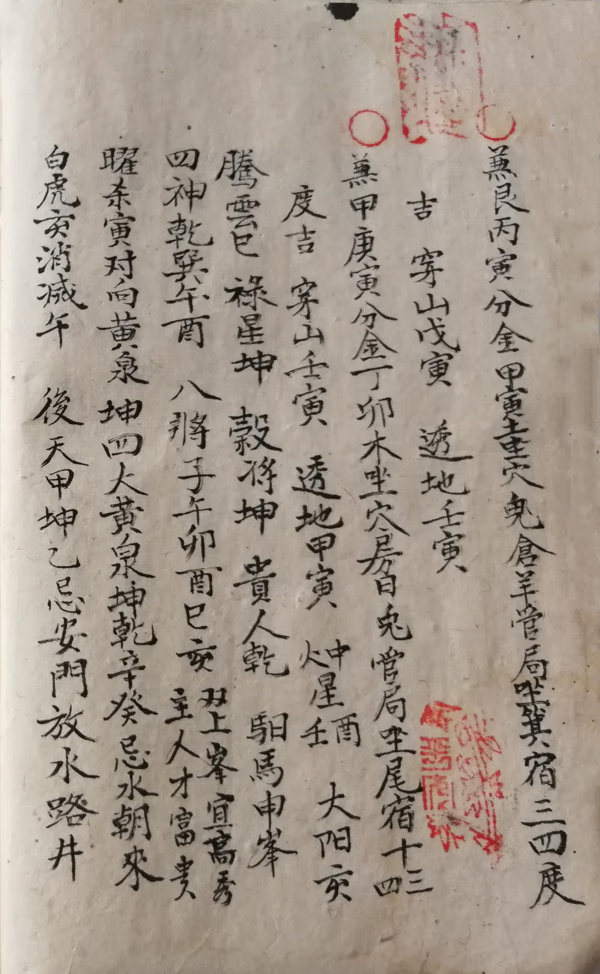 兼艮丙寅分金甲寅土坐穴鬼倉羊管局坐箕宿三四度
吉 穿山戊寅 透地壬寅
兼甲庚寅分金丁卯木坐穴房日兔管局坐尾宿十三四
度吉 穿山壬寅 透地甲寅 冲星酉壬 大阳亥
騰雲巳 祿星坤 穀将坤 貴人乾 馹馬申峯
四神乾巽午酉 八將子午卯酉巳亥 双上峯宜高秀主人才富贵
曜杀寅对向黄泉坤四大黄泉坤乾辛癸忌水朝來
白虎亥消滅午 後天甲坤乙忌安門放水路井